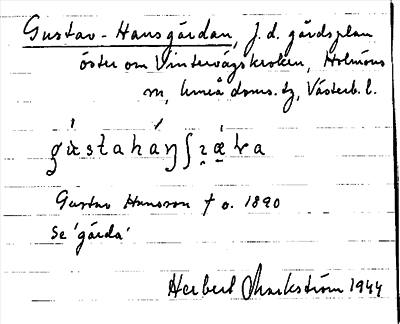 Gustav-Hansgärdan, f.d. gårdsplan
öster om Vintervägskroken, Holmöns
sn, Umeå doms. tg, Västerb. l.
Gustav Hansson † o. 1890
Se 'gärda'
Herbert Markström 1944